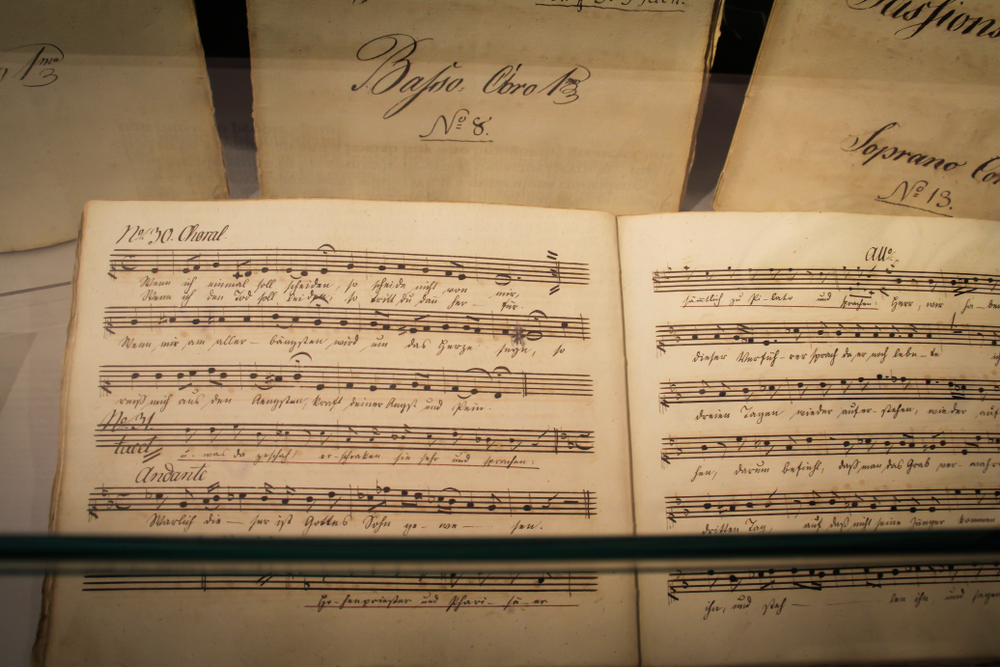 1mo
Basso. Coro 1mo
No 8.
Passions
Soprano Co
No 13.
No 30. Choral.
Wenn ich einmal soll scheiden, so scheide nicht von mir,
Wenn ich den Tod soll leiden, so tritt du dan her für.
Wenn mir am aller- bängsten wird um das Herze seyn, so
reiß mich aus den Aengsten, kraft deiner Angst und Pein.
No 31
tacet
u. was da geschah! er- schraken sie sehr und sprachen:
Andante
Warlich die- ser ist Gottes Sohn ge- we- sen.
Ho- henpriester und Phari- sä- er
Allo
sämtlich zu Pi- lato und sprachen: Herr, wir ha- be
dieser Verfüh- rer sprach da er noch lebe- te
dreien Tagen wieder aufer- stehen, wieder auf
hen, darum befiehl, daß man das Grab ver- wahr
dritten Tag, auf daß nicht seine Jünger kommen
ihn, und steh- len ihn, und sagen